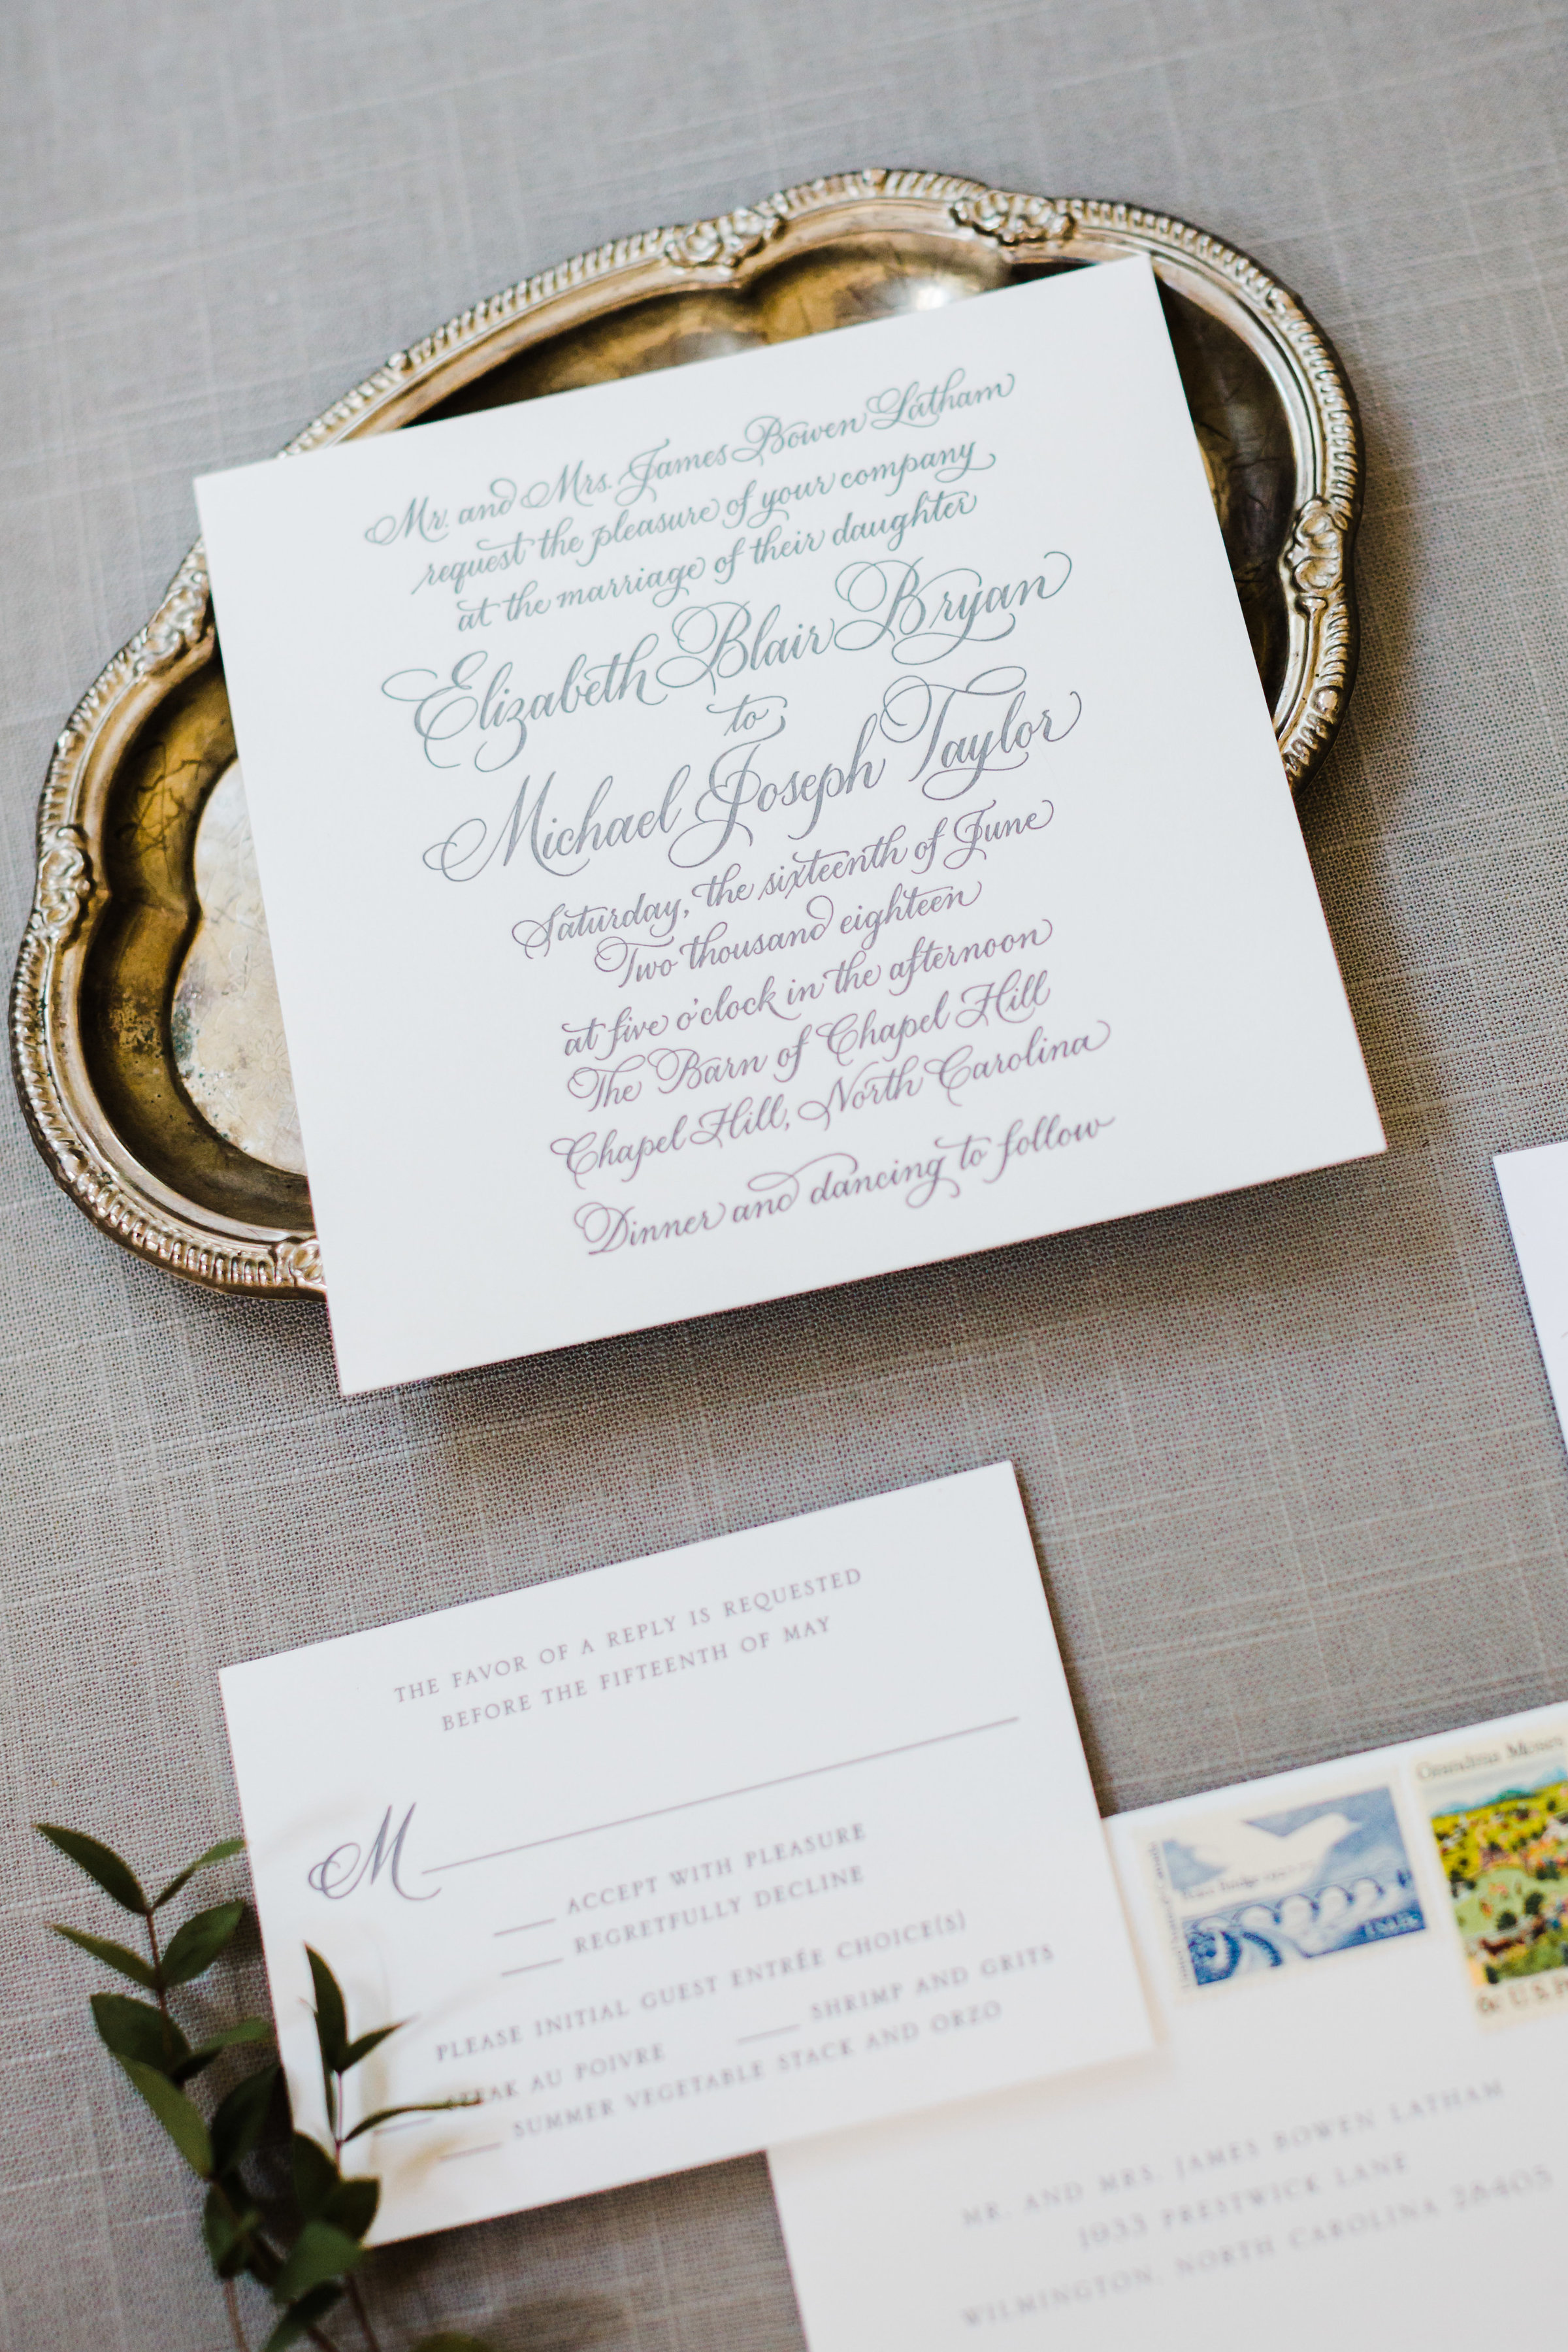 Mr. and Mrs. James Bowen Latham
request the pleasure of your company
at the marriage of their daughter
Elizabeth Blair Bryan
to
Michael Joseph Taylor
Saturday, the sixteenth of June
Two thousand eighteen
at five o'clock in the afternoon
The Barn of Chapel Hill
Chapel Hill, North Carolina
Dinner and dancing to follow
THE FAVOR OF A REPLY IS REQUESTED
BEFORE THE FIFTEENTH OF MAY
M
ACCEPT WITH PLEASURE
REGRETFULLY DECLINE
PLEASE INITIAL GUEST ENTRÉE CHOICE(S)
STEAK AU POIVRE SHRIMP AND GRITS
SUMMER VEGETABLE STACK AND ORZO
Grandma Moses
6c U.S.
MR. AND MRS. JAMES BOWEN LATHAM
1933 PRESTWICK LANE
WILMINGTON, NORTH CAROLINA 28405